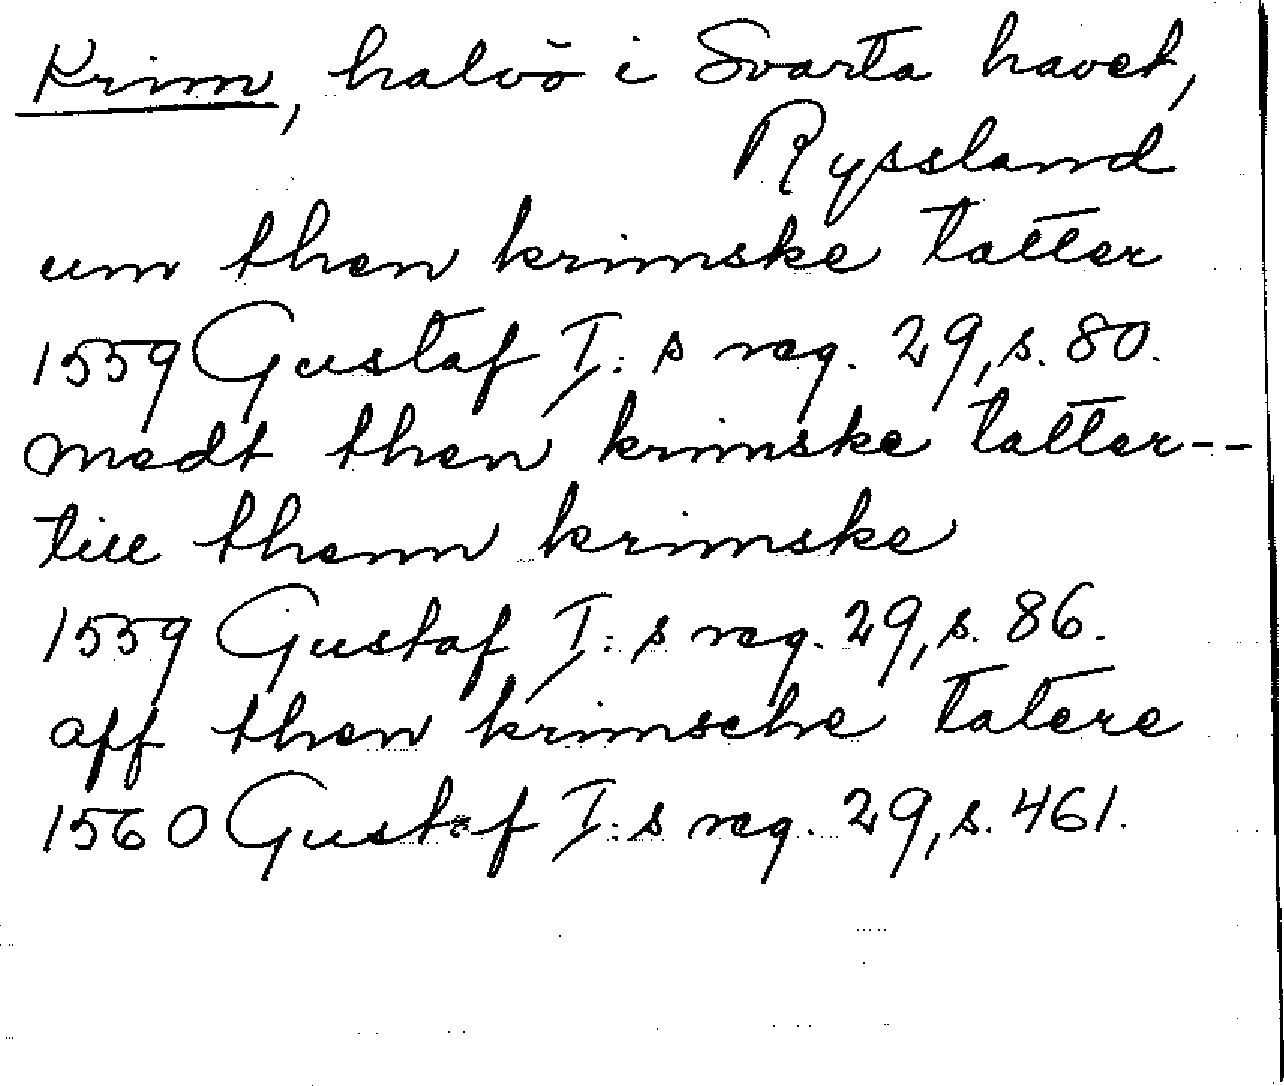 Krim, halvö i Svarta havet,
Ryssland
um then krimske tatter
1559 Gustaf I:s reg. 29, s. 80.
medt then krimske tatter--
till thenn krimske
1559 Gustaf I:s reg. 29, s. 86.
aff then krimsche tatere
1560 Gustaf I:s reg. 29, s. 461.